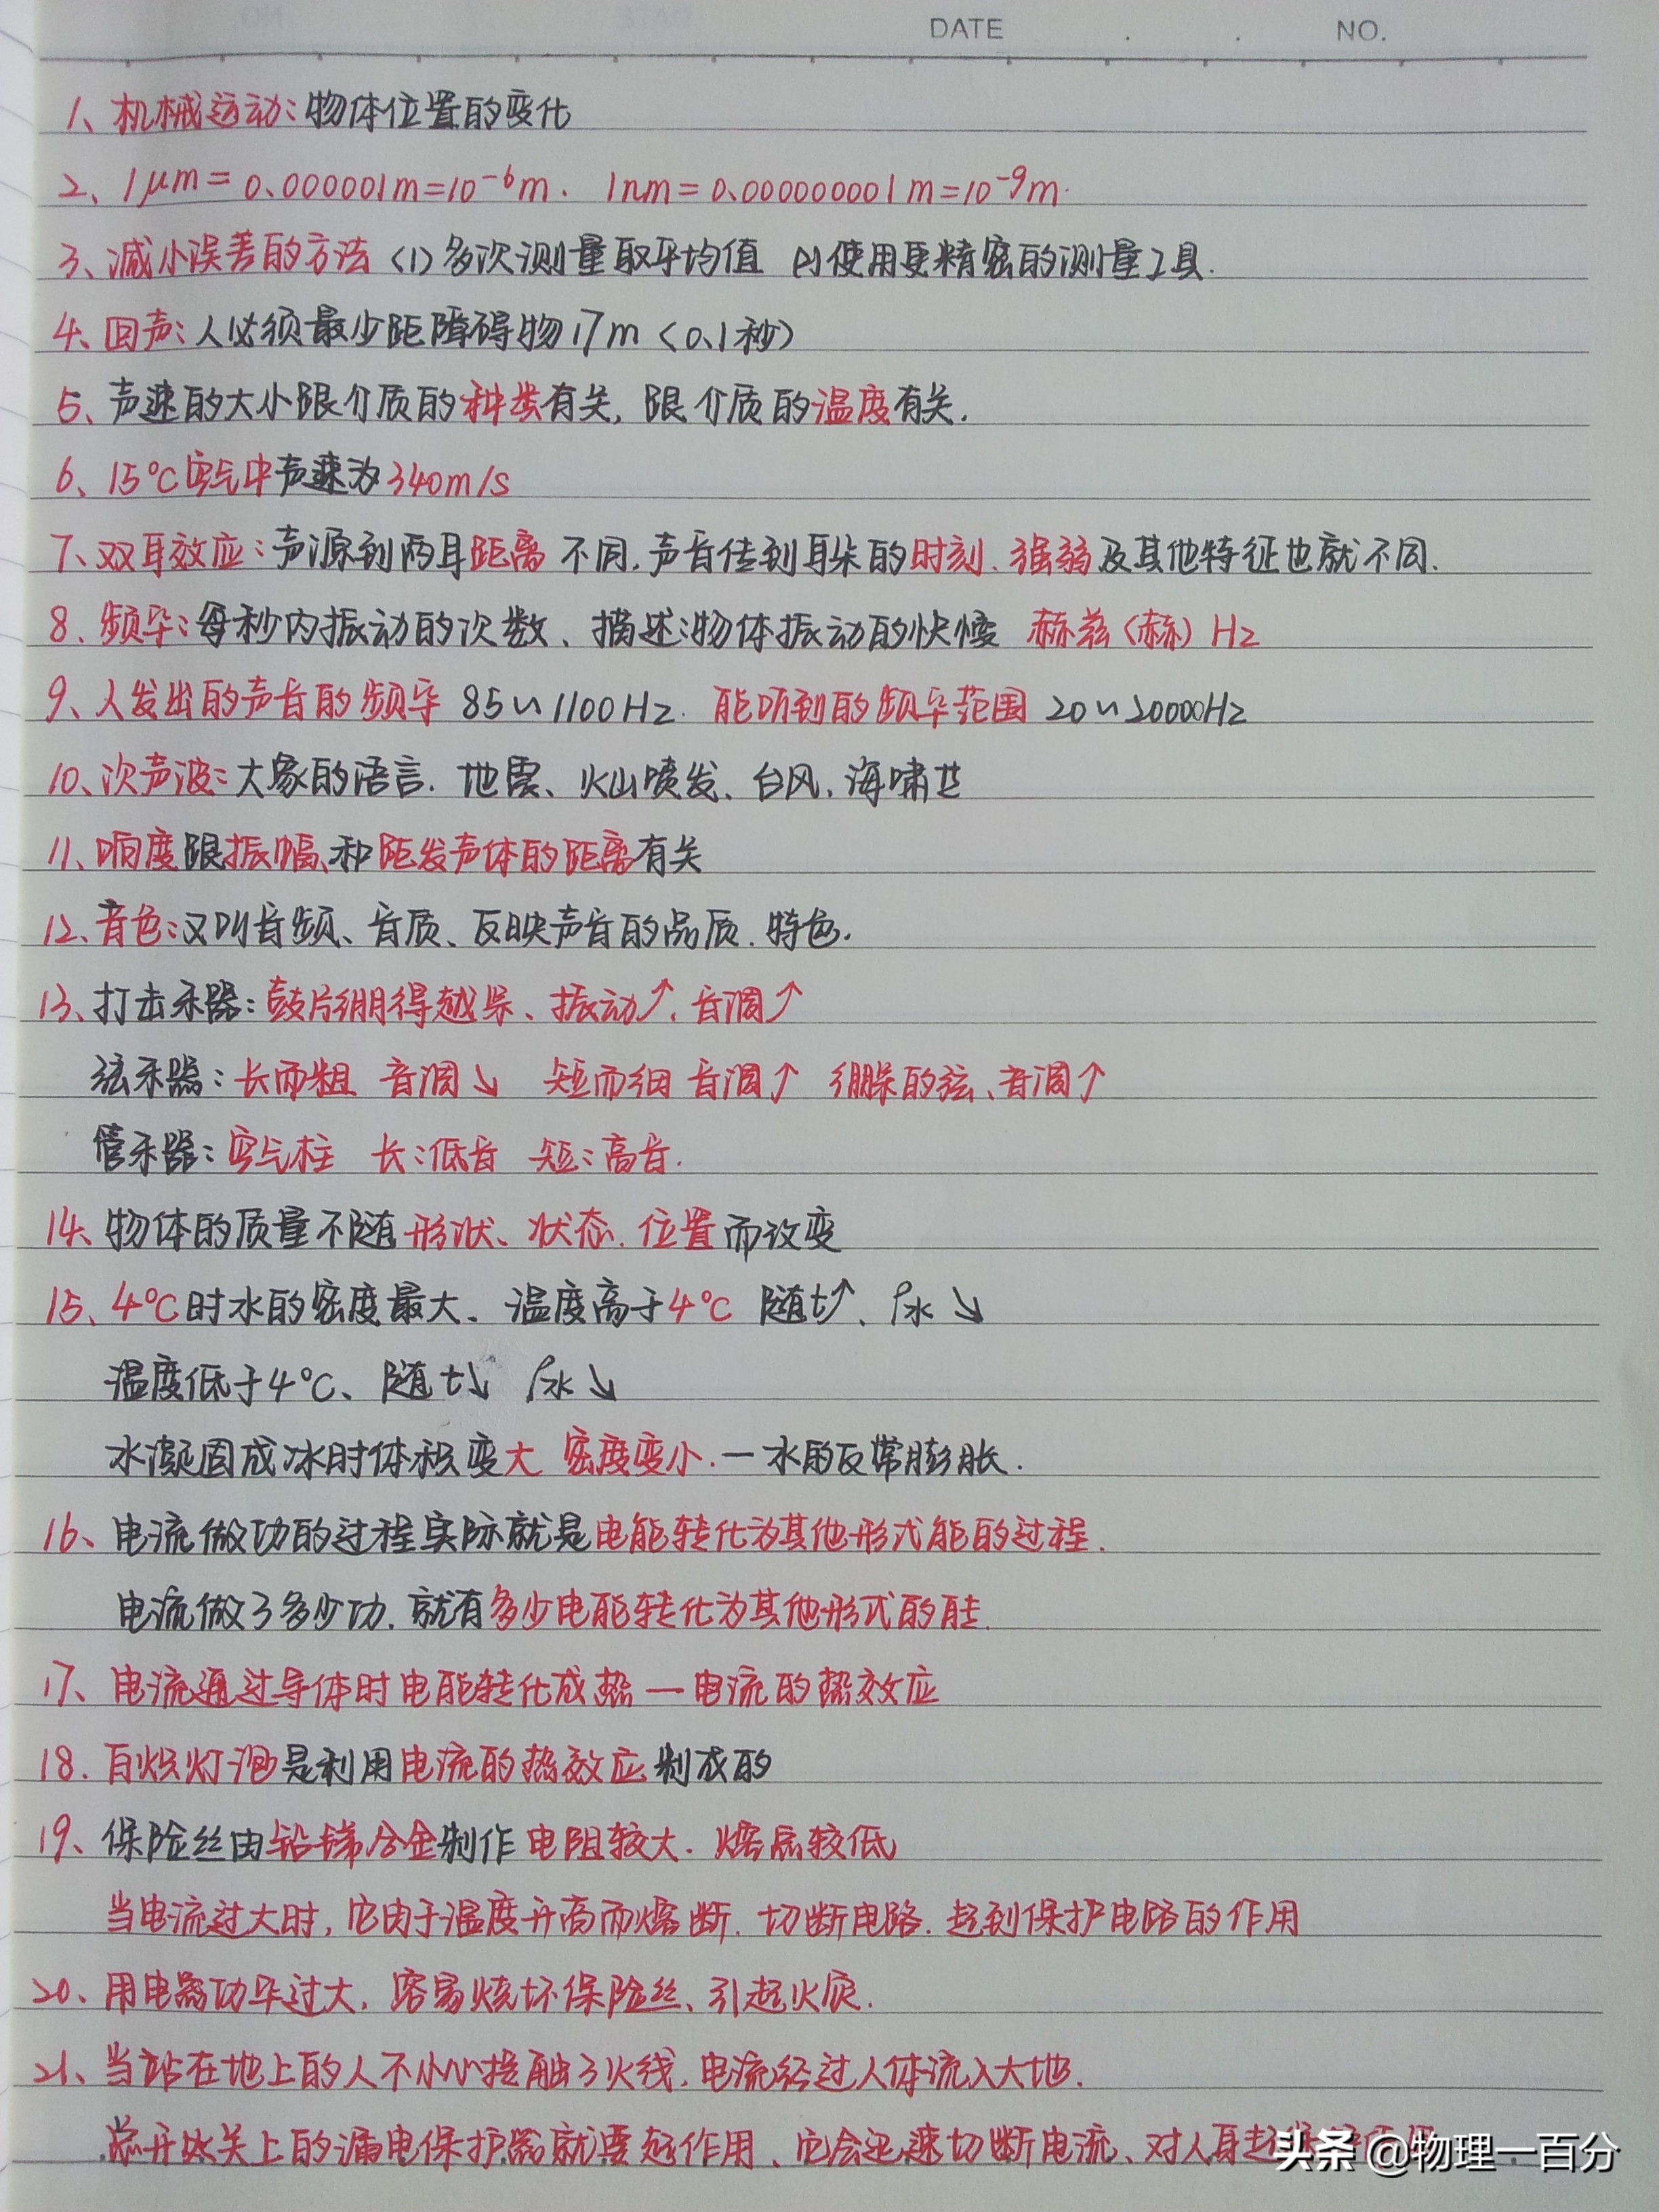 DATE . . NO.
1、机械运动：物体位置的变化
2、1μm=0.000001m=10⁻⁶m. 1nm=0.000000001m=10⁻⁹m.
3、减小误差的方法 (1)多次测量取平均值 (2)使用更精密的测量工具.
4、回声：人必须最少距障碍物17m（0.1秒）
5、声速的大小跟介质的种类有关，跟介质的温度有关.
6、15℃空气中声速为340m/s
7、双耳效应：声源到两耳距离不同，声音传到耳朵的时刻、强弱及其他特征也就不同.
8、频率：每秒内振动的次数、描述物体振动的快慢 赫兹（赫）Hz
9、人发出的声音的频率 85~1100Hz. 能听到的频率范围 20~20000Hz
10、次声波：大象的语言．地震、火山喷发、台风，海啸时
11、响度跟振幅、和距发声体的距离有关
12、音色：又叫音频、音质、反映声音的品质．特色.
13、打击乐器：鼓片绷得越紧、振动↑，音调↑
弦乐器：长而粗 音调↘ 短而细 音调↑ 绷紧的弦、音调↑
管乐器：空气柱 长：低音 短：高音.
14、物体的质量不随形状、状态．位置而改变
15、4℃时水的密度最大、温度高于4℃ 随t↑、ρ水↘
温度低于4℃、随t↘ ρ水↘
水凝固成冰时体积变大 密度变小．—水的反常膨胀.
16、电流做功的过程实际就是电能转化为其他形式能的过程.
电流做了多少功．就有多少电能转化为其他形式的能.
17、电流通过导体时电能转化成热—电流的热效应
18．白炽灯泡是利用电流的热效应制成的
19、保险丝由铅锑合金制作 电阻较大．熔点较低
当电流过大时，它由于温度升高而熔断．切断电路．起到保护电路的作用
20、用电器功率过大，容易烧坏保险丝、引起火灾.
21、当站在地上的人不小心接触了火线，电流经过人体流入大地.
总开关上的漏电保护器就要起作用、它会迅速切断电流、对人身起
头条 @物理一百分